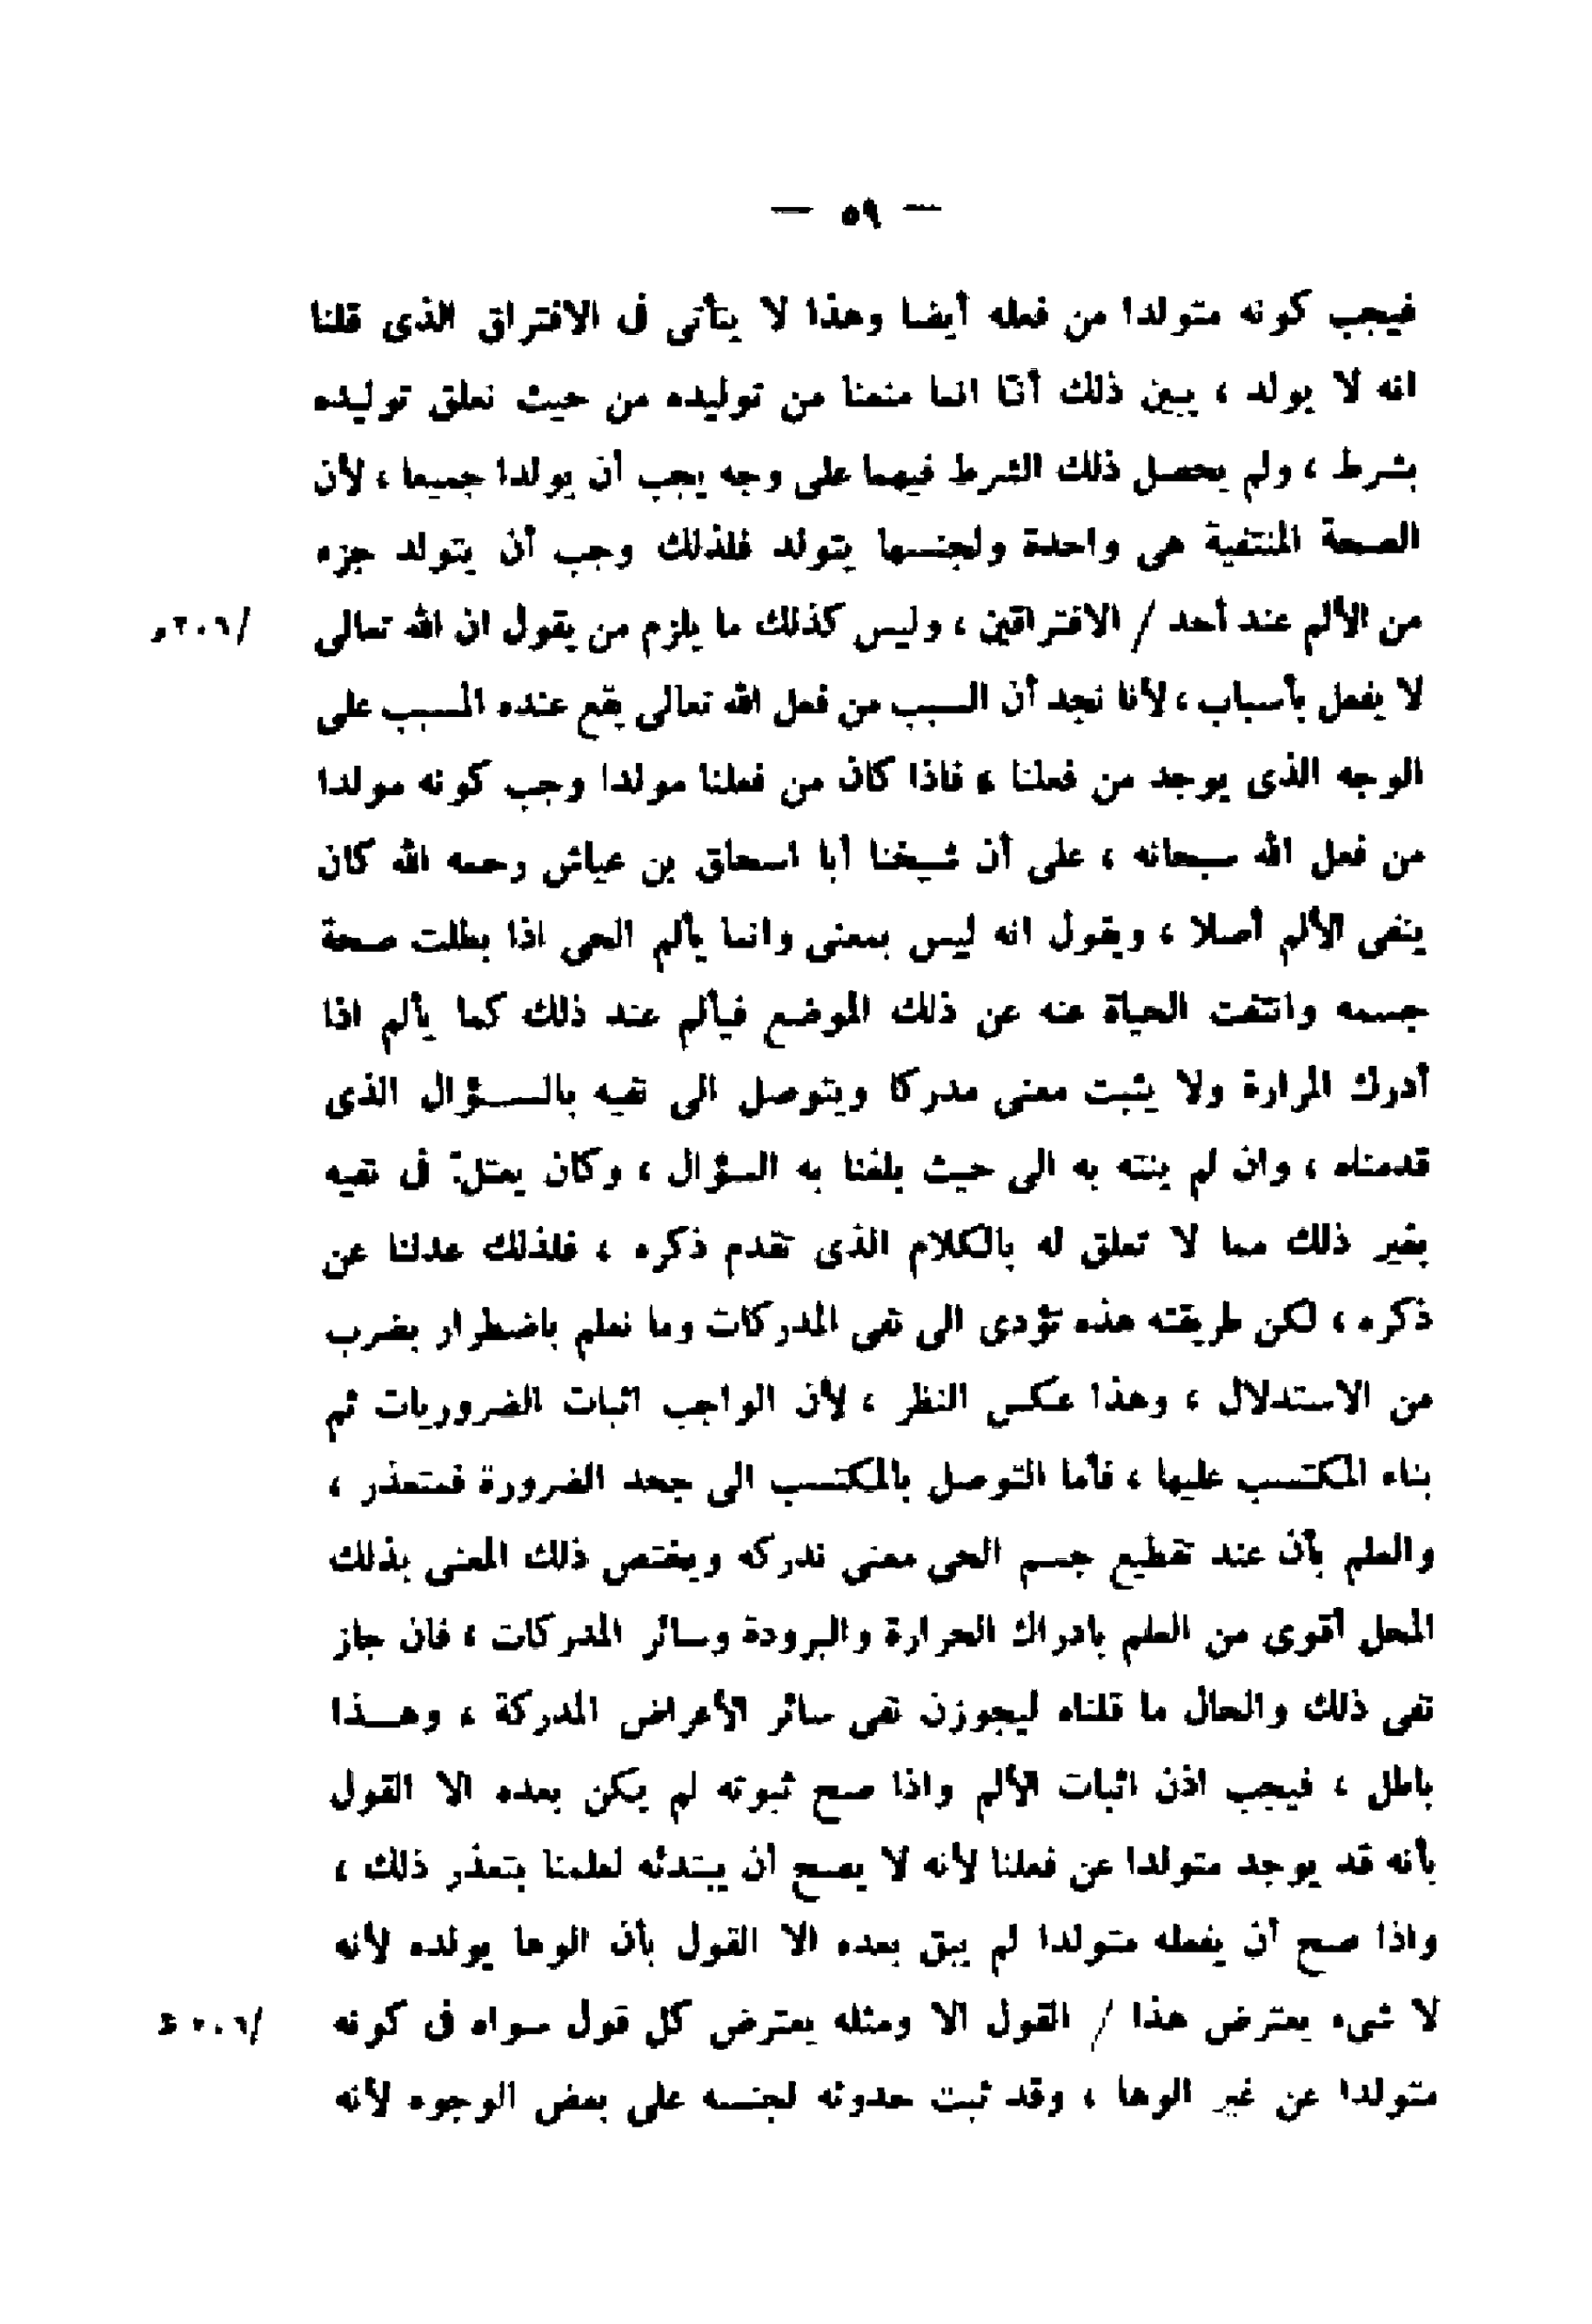 — ٥٩ —
فيجب كونه متولدا من فعله أيضا وهذا لا يتأتى فى الافتراق الذى قلنا
انه لا يولد ، يبين ذلك أنّا انما منعنا من توليده من حيث تعلق توليده
بشرط ، ولم يحصل ذلك الشرط فيهما على وجه يجب أن يولدا جميعا ، لأن
الصحة المنتفية هى واحدة ولجنسها يتولد فلذلك وجب أن يتولد جزء
من الألم عند أحد / الافتراقين ، وليس كذلك ما يلزم من يقول ان الله تعالى /٢٠٦و
لا يفعل بأسباب ، لأنا نجد أن السبب من فعل الله تعالى يقع عنده المسبب على
الوجه الذى يوجد من فعلنا ، فاذا كان من فعلنا مولدا وجب كونه مولدا
من فعل الله سبحانه ، على أن شيخنا أبا اسحاق بن عياش رحمه الله كان
ينفى الألم أصلا ، ويقول انه ليس بمعنى وانما يألم الحى اذا بطلت صحة
جسمه وانتفت الحياة عنه عن ذلك الموضع فيألم عند ذلك كما يألم اذا
أدرك المرارة ولا يثبت معنى مدركا ويتوصل الى نفيه بالسؤال الذى
قدمناه ، وان لم ينته به الى حيث بلغنا به السؤال ، وكان يعتلّ فى نفيه
بغير ذلك مما لا تعلق له بالكلام الذى تقدم ذكره ، فلذلك عدلنا عن
ذكره ، لكن طريقته هذه تؤدى الى نفى المدركات وما نعلم باضطرار بضرب
من الاستدلال ، وهذا عكس النظر ، لأن الواجب اثبات الضروريات ثم
بناء المكتسب عليها ، فأما التوصل بالمكتسب الى جحد الضرورة فمتعذر ،
والعلم بأن عند تقطيع جسم الحى معنى ندركه ويختص ذلك المعنى بذلك
المحل أقوى من العلم بادراك الحرارة والبرودة وسائر المدركات ، فان جاز
نفى ذلك والحال ما قلناه ليجوزن نفى سائر الأعراض المدركة ، وهذا
باطل ، فيجب اذن اثبات الألم واذا صح ثبوته لم يكن بعده الا القول
بأنه قد يوجد متولدا عن فعلنا لأنه لا يصح أن يبتدئه لعلمنا بتعذر ذلك ،
واذا صح أن يفعله متولدا لم يبق بعده الا القول بأن الوها يولده لأنه
لا شىء يعترض هذا / القول الا ومثله يعترض كل قول سواه فى كونه /٢٠٦ظ
متولدا عن غير الوها ، وقد ثبت حدوثه لجنسه على بعض الوجوه لأنه